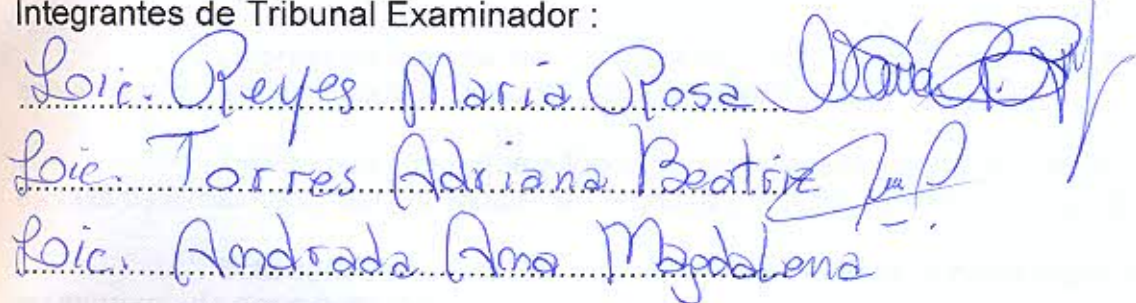 Integrantes de Tribunal Examinador :
Loic. Reyes Maria Rosa
Loic. Torres Adriana Beatriz
Loic. Andrada Ana Magdalena